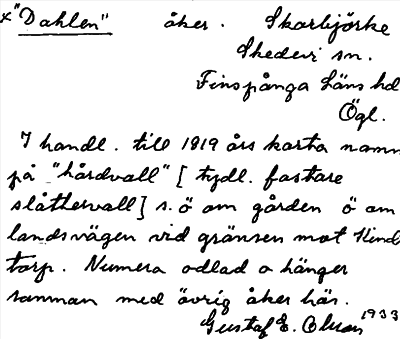 x "Dahlen" åker. Skarbjörke
Skedevi sn.
Finspånga läns hd
Ögl.
I handl. till 1819 års karta namn
på "hårdvall" [tydl. fastare
slåttervall] s.ö om gården ö om
landsvägen vid gränsen mot Hind
torp. Numera odlad o hänger
samman med övrig åker här.
Gustaf E. Olsson 1933